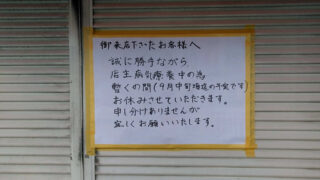 御来店下さったお客様へ
誠に勝手ながら
店主病気療養中の為
暫くの間(9月中旬頃迄の予定です)
お休みさせていただきます。
申し分けありませんが
宜しくお願いいたします。